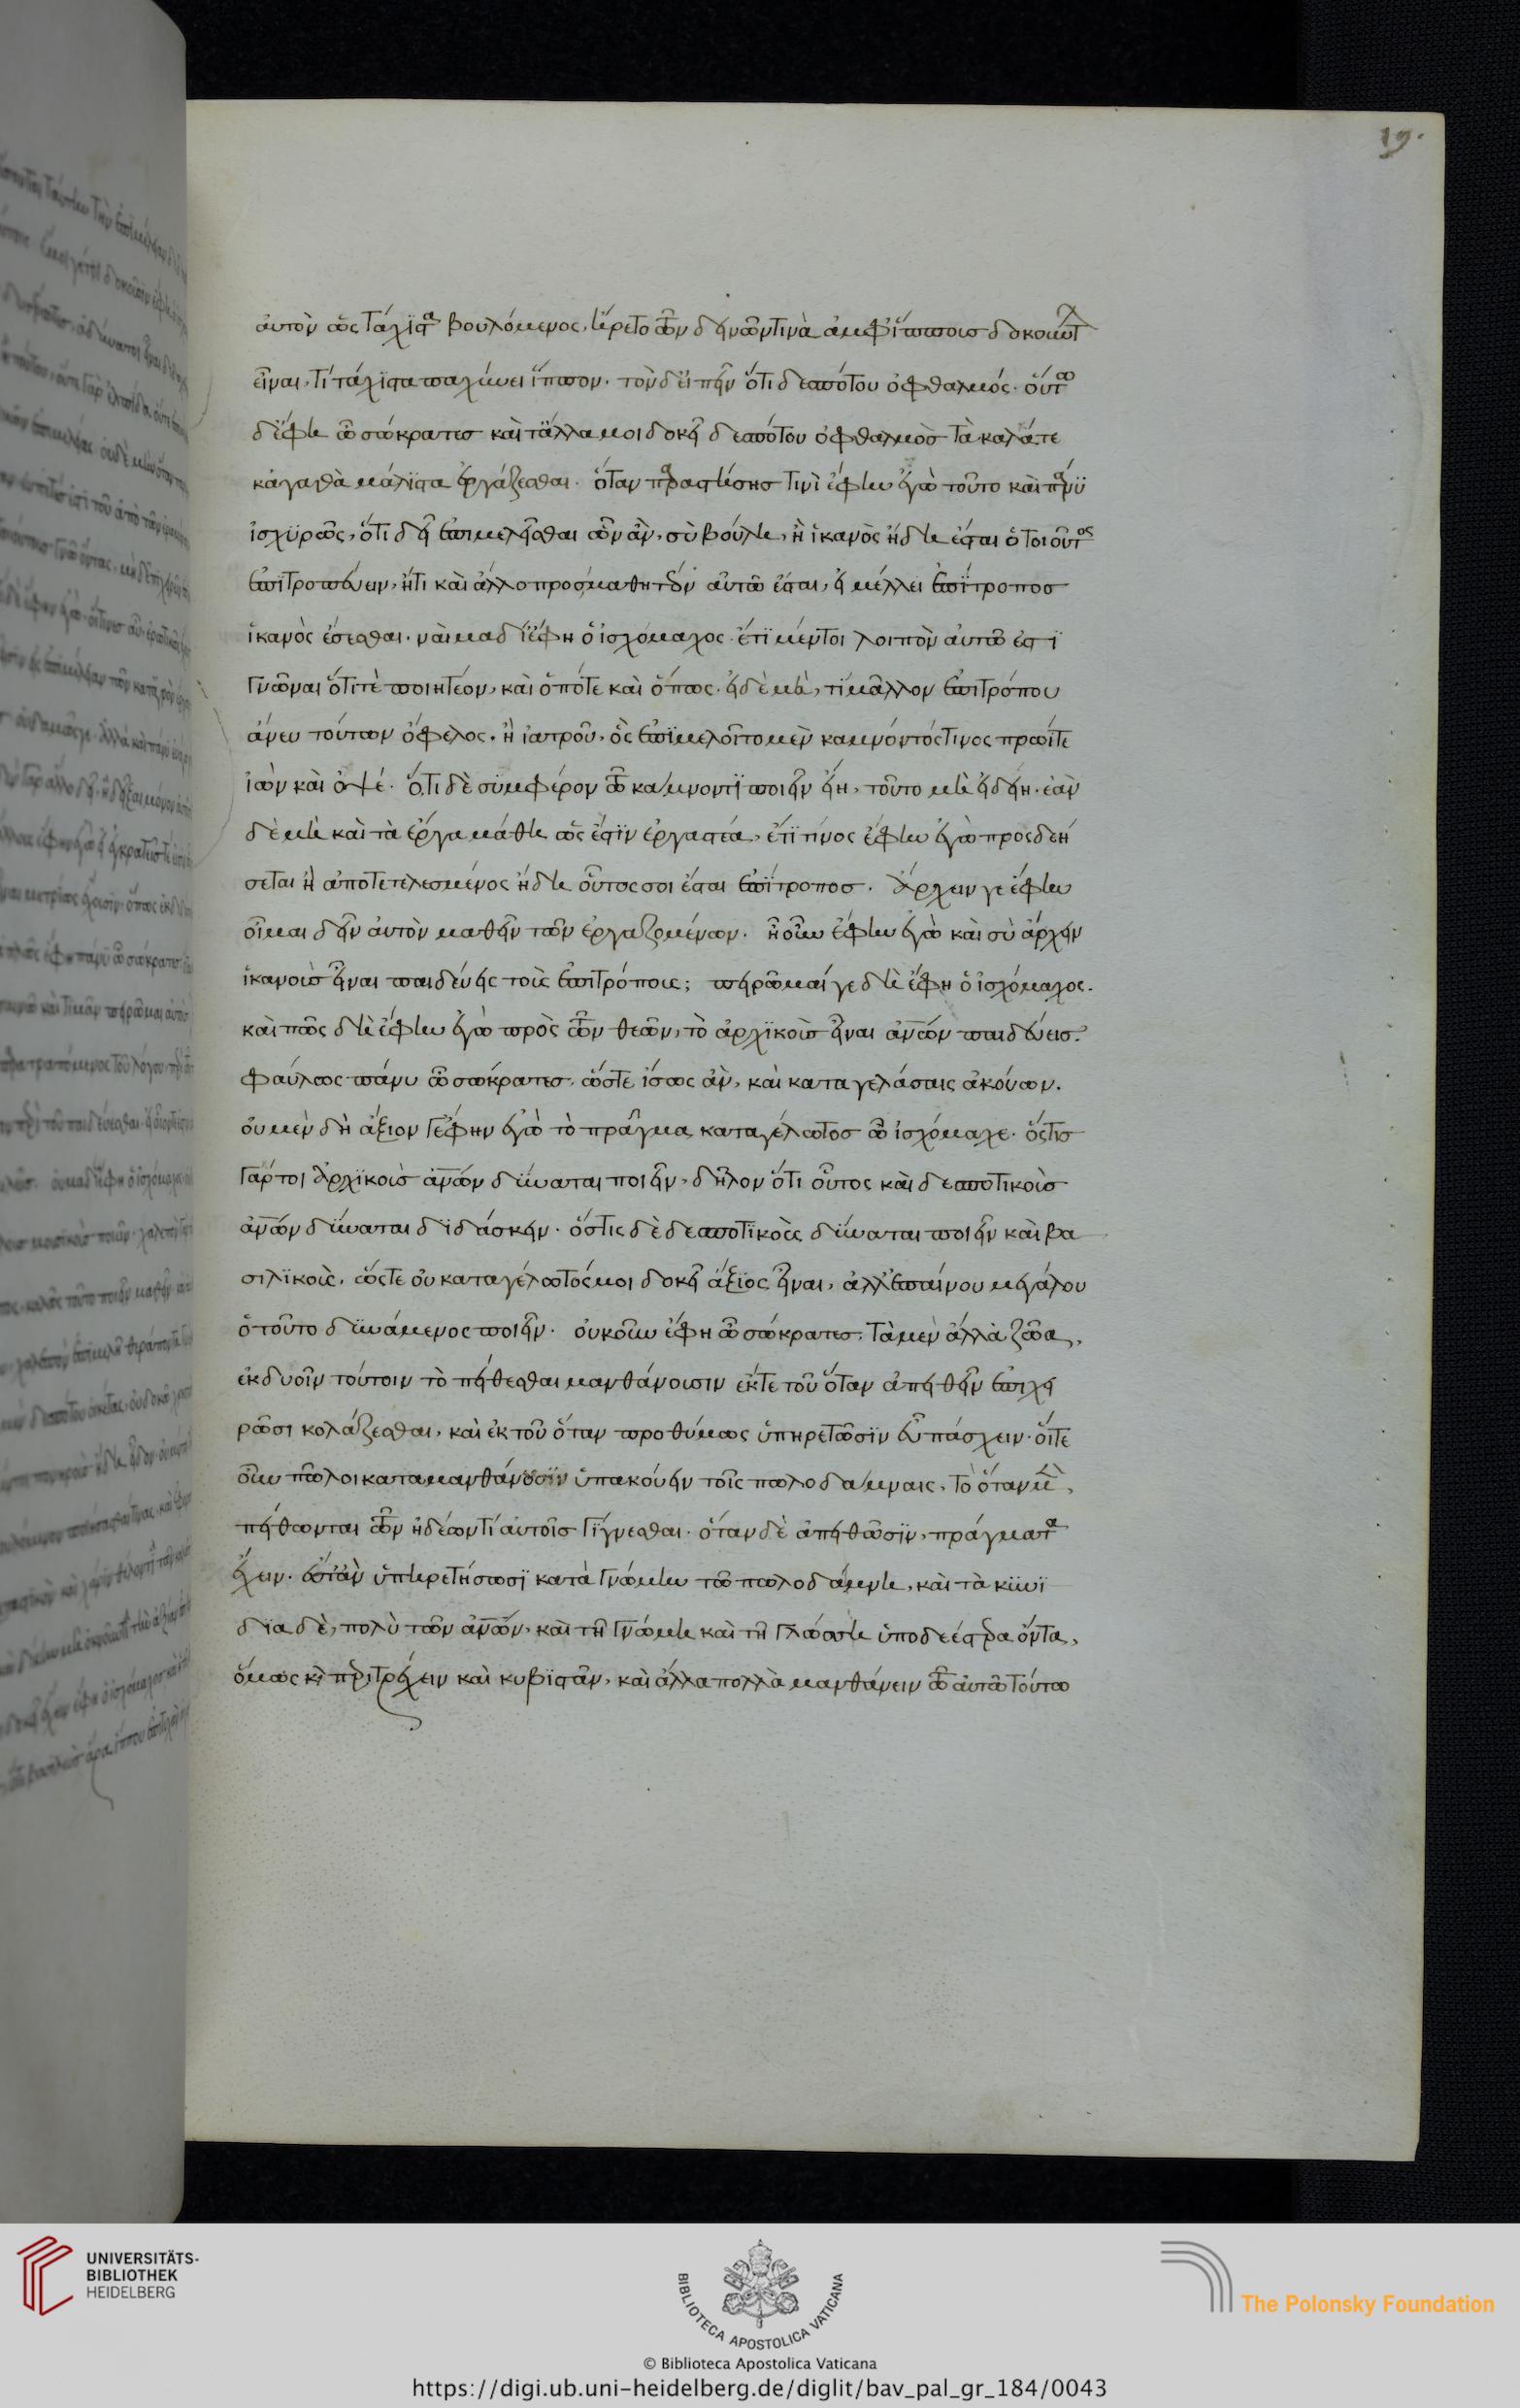 19.
αὐτὸν ὡς τάχιστα βουλόμενος, ἤρετο τῶν δεινῶν τινὰ ἀμφ' ἵππους δοκούντων
εἶναι, τί τάχιστα παχύνει ἵππον. τὸν δ' εἰπεῖν ὅτι δεσπότου ὀφθαλμός. οὕτω
δ' ἔφη ὦ σώκρατες καὶ τἄλλα μοι δοκεῖ δεσπότου ὀφθαλμὸς τὰ καλά τε
κἀγαθὰ μάλιστα ἐργάζεσθαι. ὅταν παραστήσης τινὶ ἔφην ἐγὼ τοῦτο καὶ πάνυ
ἰσχυρῶς, ὅτι δεῖ ἐπιμελεῖσθαι ὧν ἂν, σὺ βούλη, ἢ ἱκανὸς ἤδη ἔσται ὁ τοιοῦτος
ἐπιτροπεύειν, ἤ τι καὶ ἄλλο προσμαθητέον αὐτῶ ἔσται, εἰ μέλλει ἐπίτροπος
ἱκανὸς ἔσεσθαι. ναὶ μὰ δί' ἔφη ὁ ἰσχόμαχος. ἔτι μέντοι λοιπὸν αὐτῶ ἐστὶ
γνῶναι ὅτι τὲ ποιητέον, καὶ ὁπότε καὶ ὅπως. εἰ δὲ μὴ, τί μᾶλλον ἐπιτρόπου
ἄνευ τούτων ὄφελος, ἢ ἰατροῦ, ὃς ἐπιμελοῖτο μὲν κάμνοντός τινος πρωΐ τε
ἰὼν καὶ ὀψέ. ὅ,τι δὲ συμφέρον τῶ κάμνοντι ποιεῖν εἴη, τοῦτο μὴ εἰδείη. ἐὰν
δὲ μὴ καὶ τὰ ἔργα μάθη ὡς ἔστιν ἐργαστέα, ἔτι τίνος ἔφην ἐγὼ προσδεή
σεται ἢ ἀποτετελεσμένος ἤδη οὗτος σοι ἔσται ἐπίτροπος. ἄρχειν γε ἔφη
οἶμαι δεῖν αὐτὸν μαθεῖν τῶν ἐργαζομένων. ἦ οὖν ἔφην ἐγὼ καὶ σὺ ἄρχειν
ἱκανοὺς εἶναι παιδεύεις τοὺς ἐπιτρόπους; πειρῶμαί γε δὴ ἔφη ὁ ἰσχόμαχος.
καὶ πῶς δὴ ἔφην ἐγὼ πρὸς τῶν θεῶν, τὸ ἀρχικοὺς εἶναι ἀνων παιδεύεις.
φαύλως πάνυ ὦ σώκρατες, ὥστε ἴσως ἂν, καὶ καταγελάσαις ἀκούων.
οὐ μὲν δὴ ἄξιον γ' ἔφην ἐγὼ τὸ πρᾶγμα καταγέλωτος ὦ ἰσχόμαχε. ὅστις
γάρ τοι ἀρχικοὺς ἀνων δύναται ποιεῖν, δῆλον ὅτι οὗτος καὶ δεσποτικοὺς
ἀνων δύναται διδάσκειν. ὅστις δὲ δεσποτικοὺς δύναται ποιεῖν καὶ βα
σιλικούς. ὥστε οὐ καταγέλωτός μοι δοκεῖ ἄξιος εἶναι, ἀλλ' ἐπαίνου μεγάλου
ὁ τοῦτο δυνάμενος ποιεῖν. οὐκοῦν ἔφη ὦ σώκρατες. τὰ μὲν ἄλλα ζῶα,
ἐκ δυοῖν τούτοιν τὸ πείθεσθαι μανθάνουσιν ἔκ τε τοῦ ὅταν ἀπειθεῖν ἐπιχει
ρῶσι κολάζεσθαι, καὶ ἐκ τοῦ ὅταν προθύμως ὑπηρετῶσιν εὖ πάσχειν. οἵ τε
οὖν πῶλοι καταμανθάνουσιν ὑπακούειν τοῖς πωλοδάμναις, τὸ ὅταν μὲν,
πείθωνται τῶν ἡδέων τί αὐτοῖς γίγνεσθαι. ὅταν δὲ ἀπειθῶσιν, πράγματα
ἔχειν. ἔστ' ἂν ὑπηρετήσωσι κατὰ γνώμην τῶ πωλοδάμνη, καὶ τὰ κυνί
δια δὲ, πολὺ τῶν ἀνων, καὶ τῆ γνώμη καὶ τῆ γλώσση ὑποδεέστερα ὄντα,
ὅμως κ περιτρέχειν καὶ κυβιστᾶν, καὶ ἄλλα πολλὰ μανθάνειν τῶ αὐτῶ τούτω
UNIVERSITÄTS-
BIBLIOTHEK
HEIDELBERG
BIBLIOTECA APOSTOLICA VATICANA
The Polonsky Foundation
© Biblioteca Apostolica Vaticana
https://digi.ub.uni-heidelberg.de/diglit/bav_pal_gr_184/0043